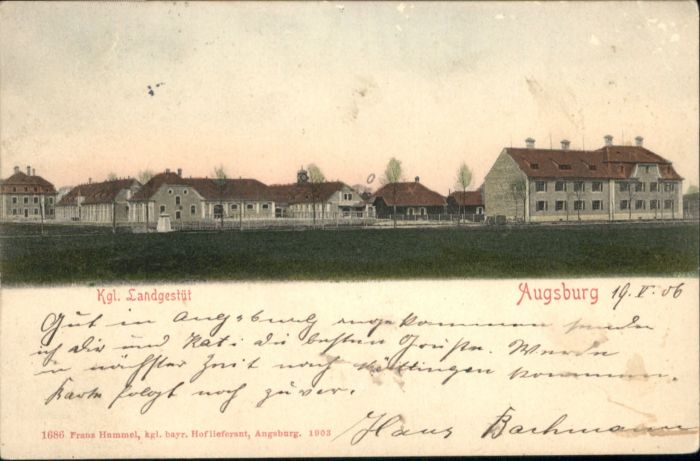 Kgl. Landgestüt
Augsburg 19. V. 06
Gut in Augsburg angekommen sende
ich Dir und Kati die besten Grüße. Werde
in nächster Zeit nach kommen.
Karte folgt noch zuvor.
Hans Bachmann
1686 Franz Hummel, kgl. bayr. Hoflieferant, Augsburg. 1903